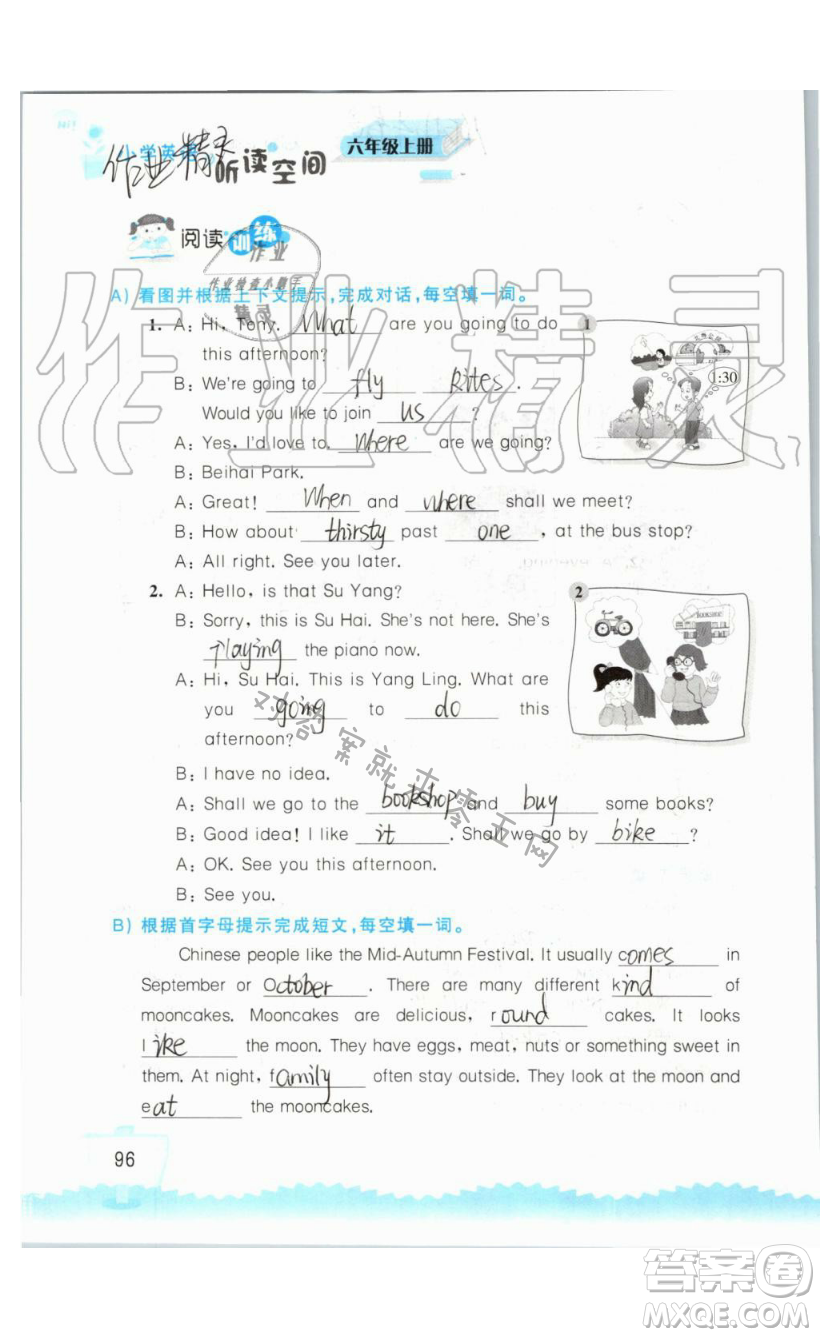 小学英语
作业精灵
听读空间
六年级上册
阅读训练
作业
作业检查小助手
精灵
作业精灵
A) 看图并根据上下文提示,完成对话,每空填一词。
1. A: Hi, Tony. What are you going to do
this afternoon?
B: We're going to fly kites .
Would you like to join us ?
A: Yes, I'd love to. Where are we going?
B: Beihai Park.
A: Great! When and where shall we meet?
B: How about thirsty past one , at the bus stop?
A: All right. See you later.
1
1:30
2. A: Hello, is that Su Yang?
B: Sorry, this is Su Hai. She's not here. She's
playing the piano now.
A: Hi, Su Hai. This is Yang Ling. What are
you going to do this
afternoon?
B: I have no idea.
A: Shall we go to the bookshop and buy some books?
B: Good idea! I like it . Shall we go by bike ?
A: OK. See you this afternoon.
B: See you.
2
对答案就来零五网
B) 根据首字母提示完成短文,每空填一词。
Chinese people like the Mid-Autumn Festival. It usually comes in
September or October . There are many different kind of
mooncakes. Mooncakes are delicious, round cakes. It looks
like the moon. They have eggs, meat, nuts or something sweet in
them. At night, family often stay outside. They look at the moon and
eat the mooncakes.
96
答案卷
MXQE.COM